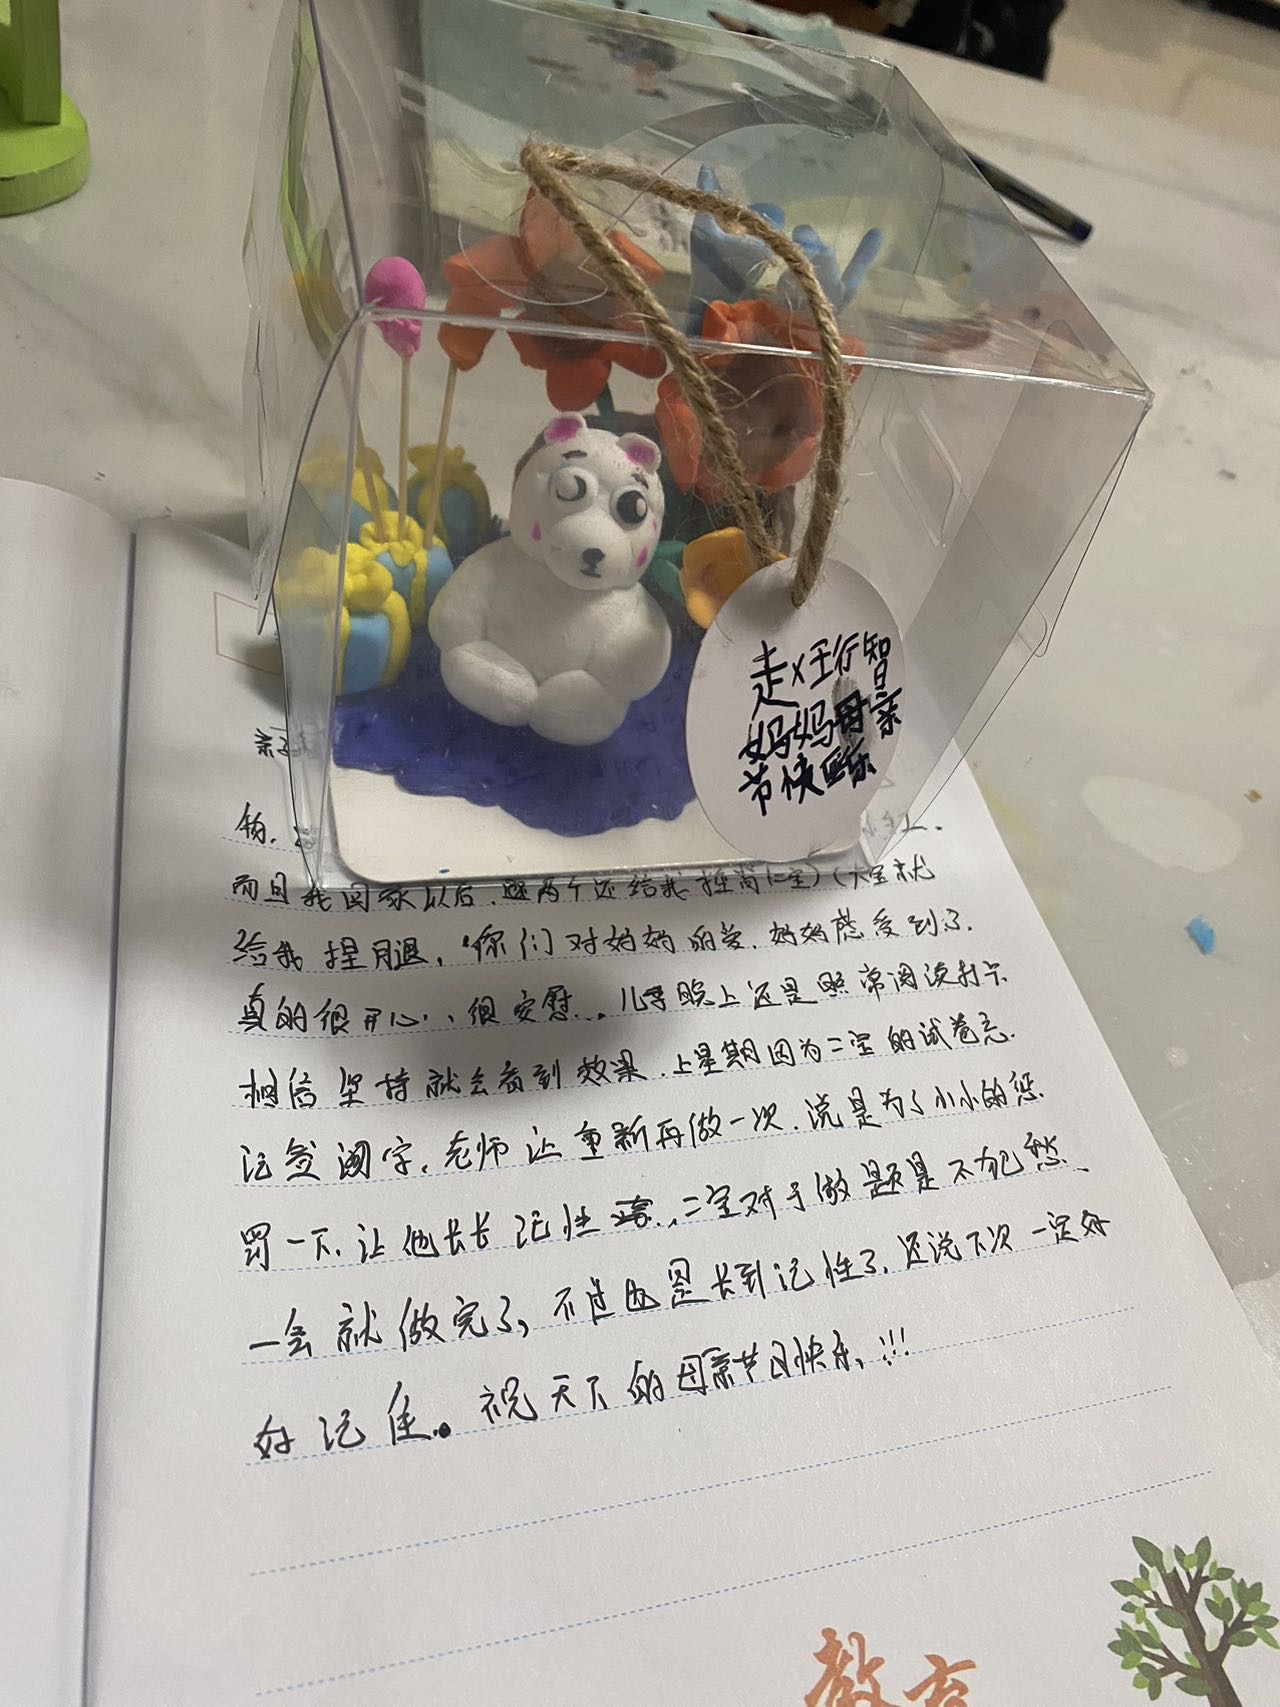 走x王行智
妈妈母亲
节快乐
亲子
而且我回家以后,两个还给我捶背(二宝)(大宝就
给我捏腿,你们对妈妈的爱,妈妈感受到了.
真的很开心..很安慰...儿子晚上还是照常阅读打卡
相信坚持就会看到效果.上星期因为二宝的试卷忘
记签阅字,老师让重新再做一次.说是为了小小的惩
罚一下,让他长长记性..,二宝对于做题是不犯愁、
一会就做完了,不过也是长到记性了,还说下次一定好
好记住.。祝天下的母亲节日快乐,!!!
教育